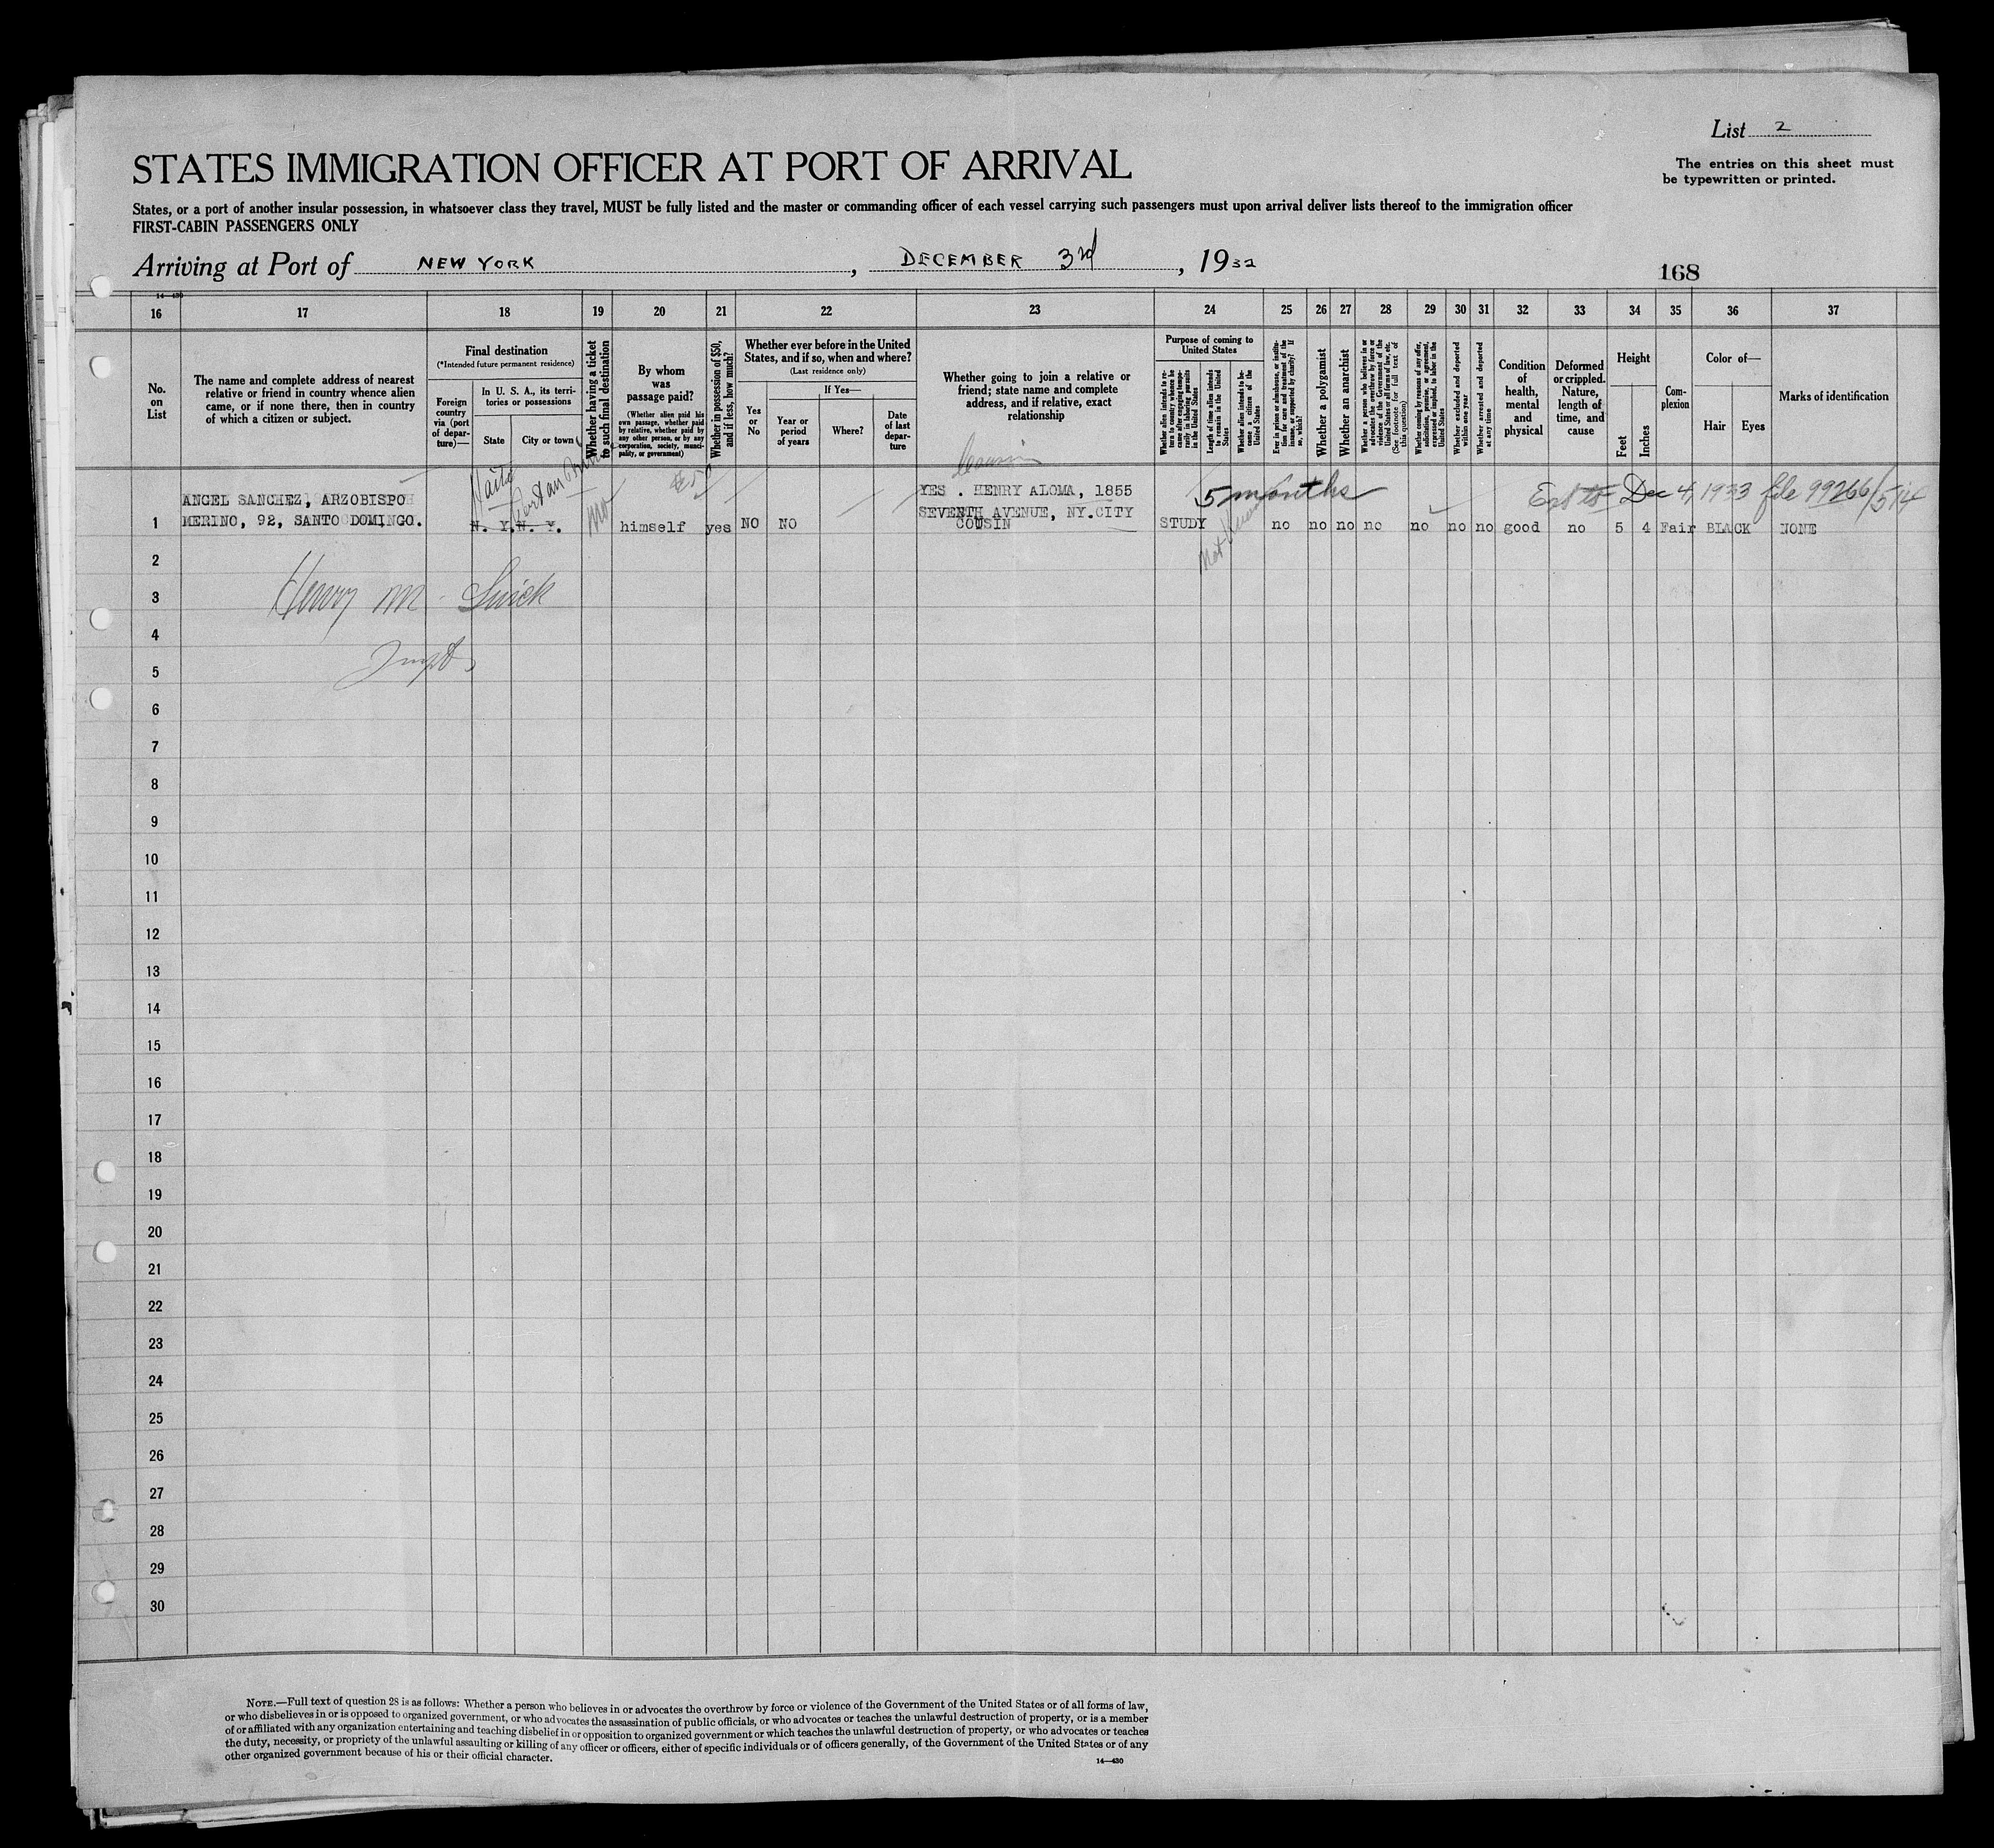 List 2
The entries on this sheet must
be typewritten or printed.
STATES IMMIGRATION OFFICER AT PORT OF ARRIVAL
States, or a port of another insular possession, in whatsoever class they travel, MUST be fully listed and the master or commanding officer of each vessel carrying such passengers must upon arrival deliver lists thereof to the immigration officer
FIRST-CABIN PASSENGERS ONLY
Arriving at Port of NEW YORK, DECEMBER 3rd, 1932
168
14—430
16 17 18 19 20 21 22 23 24 25 26 27 28 29 30 31 32 33 34 35 36 37
No.
on
List
The name and complete address of nearest
relative or friend in country whence alien
came, or if none there, then in country
of which a citizen or subject.
Final destination
(*Intended future permanent residence)
Foreign
country
via (port
of depar-
ture)—
In U. S. A., its terri-
tories or possessions
State
City or town
Whether having a ticket
to such final destination
By whom
was
passage paid?
(Whether alien paid his
own passage, whether paid
by relative, whether paid by
any other person, or by any
corporation, society, munici-
pality, or government)
Whether in possession of $50,
and if less, how much?
Whether ever before in the United
States, and if so, when and where?
(Last residence only)
Yes
or
No
If Yes—
Year or
period
of years
Where?
Date
of last
depar-
ture
Whether going to join a relative or
friend; state name and complete
address, and if relative, exact
relationship
Purpose of coming to
United States
Whether alien intends to re-
turn to country whence he
came after engaging tempo-
rarily in laboring pursuits
in the United States
Length of time alien intends
to remain in the United
States
Whether alien intends to be-
come a citizen of the
United States
Ever in prison or almshouse, or institu-
tion for care and treatment of the
insane, or supported by charity? If
so, which?
Whether a polygamist
Whether an anarchist
Whether a person who believes in or
advocates the overthrow by force or
violence of the Government of the
United States or all forms of law, etc.
(See footnote for full text of
this question)
Whether coming by reason of any offer,
solicitation, promise, or agreement,
expressed or implied, to labor in the
United States
Whether excluded and deported
within one year
Whether arrested and deported
at any time
Condition
of
health,
mental
and
physical
Deformed
or crippled.
Nature,
length of
time, and
cause
Height
Feet
Inches
Com-
plexion
Color of—
Hair
Eyes
Marks of identification
Cousin
5 months
Ext to Dec 4, 1933 file 99266/514
ANGEL SANCHEZ, ARZOBISPO
MERINO, 92, SANTO DOMINGO.
YES . HENRY ALOMA, 1855
SEVENTH AVENUE, NY.CITY
COUSIN
1 N. Y. N. Y. himself yes NO NO STUDY no no no no no no no good no 5 4 Fair BLACK NONE
2
Henry M.
3
4
5
6
7
8
9
10
11
12
13
14
15
16
17
18
19
20
21
22
23
24
25
26
27
28
29
30
NOTE.—Full text of question 28 is as follows: Whether a person who believes in or advocates the overthrow by force or violence of the Government of the United States or of all forms of law,
or who disbelieves in or is opposed to organized government, or who advocates the assassination of public officials, or who advocates or teaches the unlawful destruction of property, or is a member
of or affiliated with any organization entertaining and teaching disbelief in or opposition to organized government or which teaches the unlawful destruction of property, or who advocates or teaches
the duty, necessity, or propriety of the unlawful assaulting or killing of any officer or officers, either of specific individuals or of officers generally, of the Government of the United States or of any
other organized government because of his or their official character.
14—430